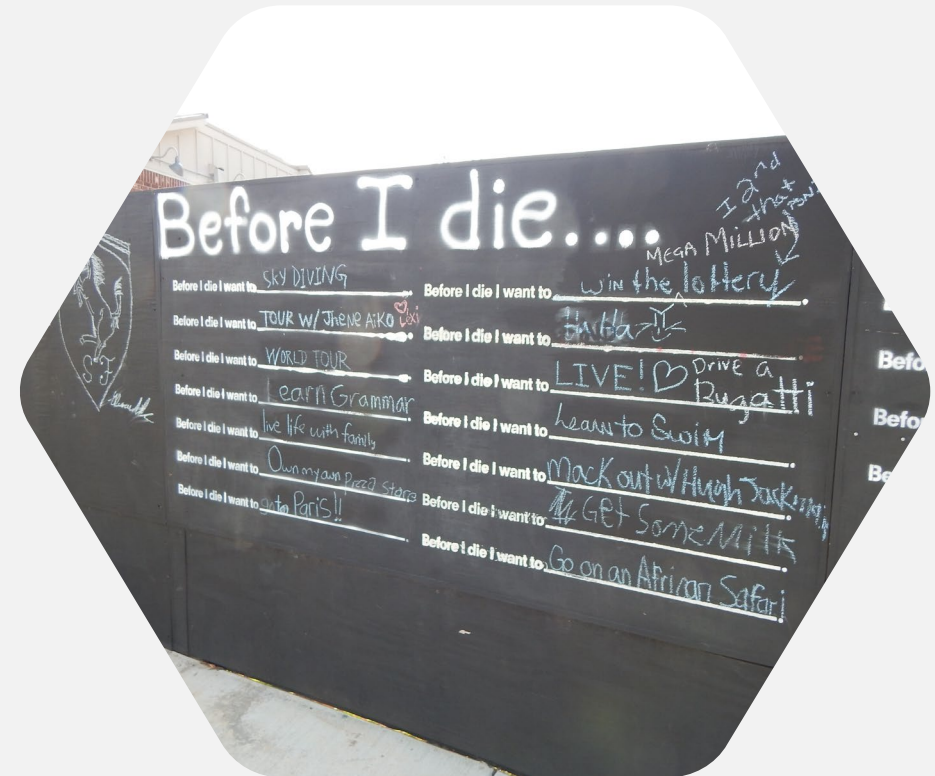 Before I die....
Before I die I want to SKY DIVING
Before I die I want to TOUR W/ JheNe AiKO
Before I die I want to WORLD TOUR
Before I die I want to Learn Grammar
Before I die I want to live life with family
Before I die I want to Own my own store
Before I die I want to go to Paris!!
I 2nd that
MEGA MILLION
Before I die I want to win the lottery
Before I die I want to
Before I die I want to LIVE! Drive a Bugatti
Before I die I want to Learn to Swim
Before I die I want to Mack out w/ Hugh
Before I die I want to Get Some Milk
Before I die I want to Go on an African Safari
Befo
Befor
Be
S F